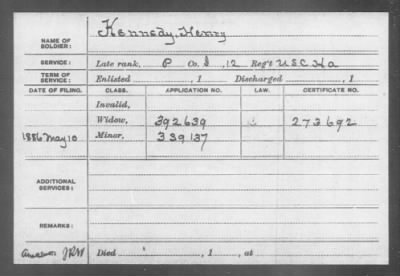 NAME OF SOLDIER: Kennedy, Henry
SERVICE: Late rank, P Co. I, 12 Reg't U S C Ha
TERM OF SERVICE: Enlisted , 1 Discharged , 1
DATE OF FILING. CLASS. APPLICATION NO. LAW. CERTIFICATE NO.
Invalid,
Widow, 392639 273692
1886 May 10 Minor, 339137
ADDITIONAL SERVICES:
REMARKS:
Died , 1 , at